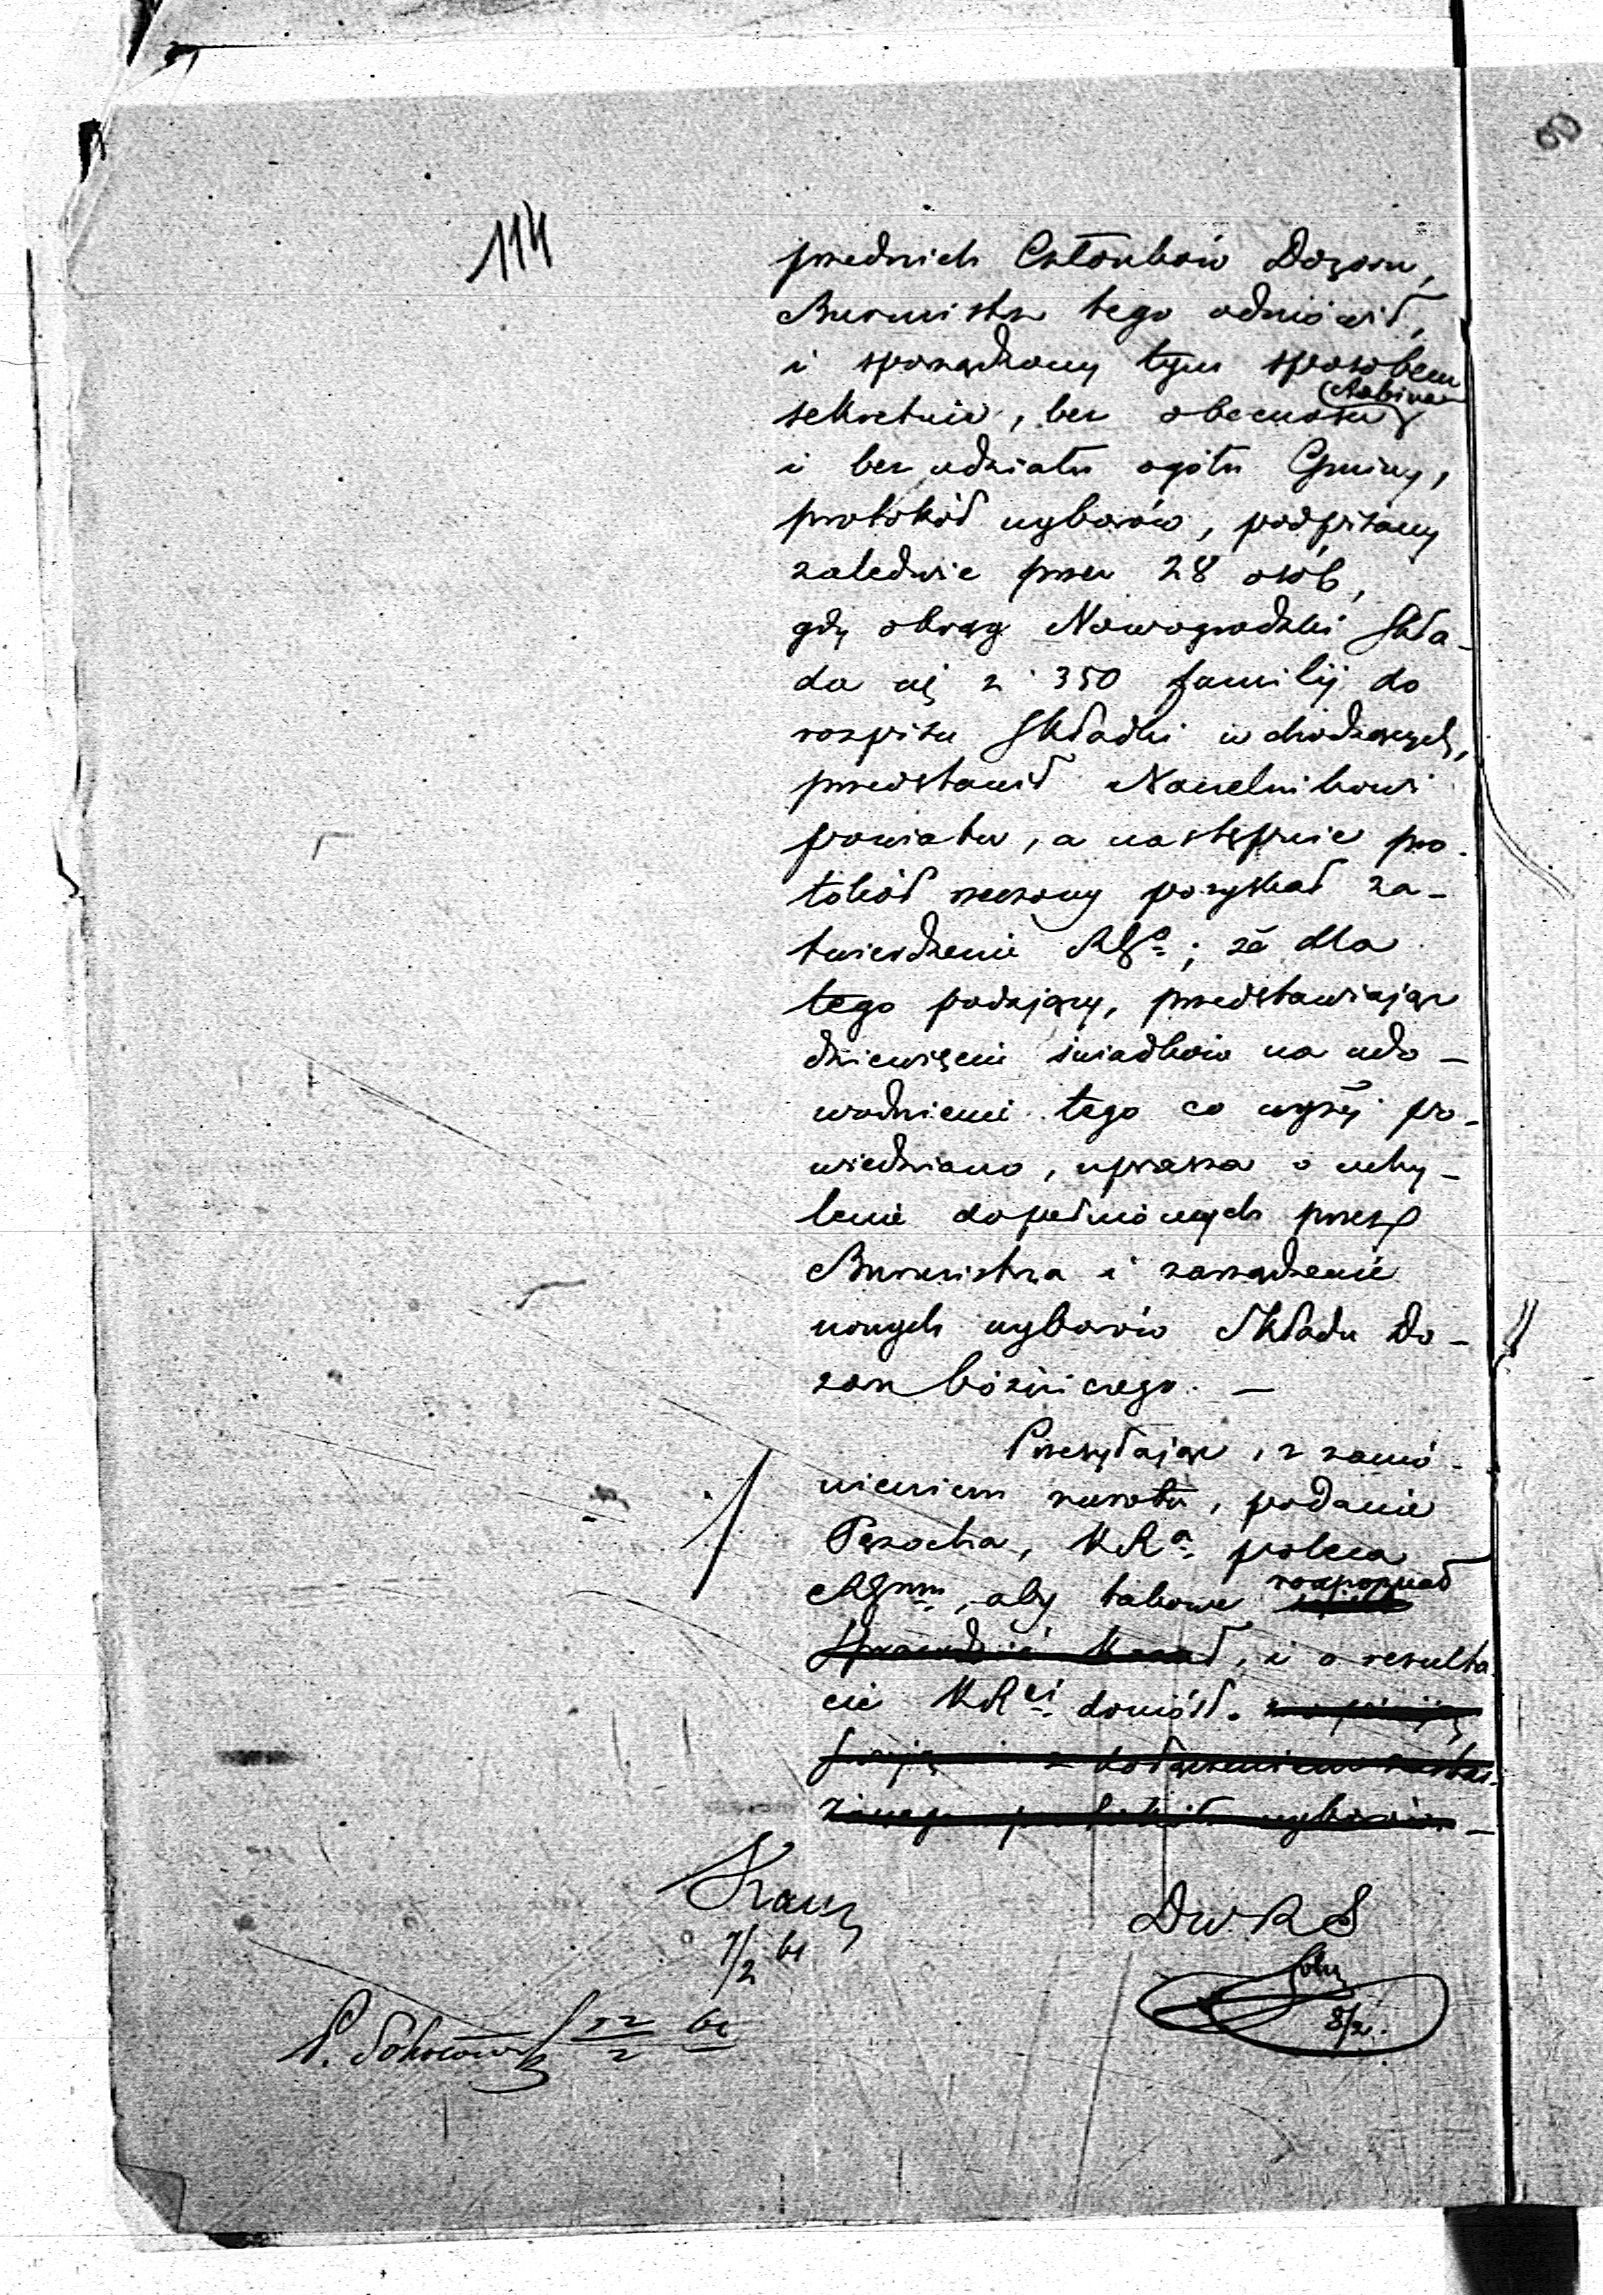 114
przednich Członków Dozoru,
Burmistrz tego odmówił,
i sporządzony tym sposobem
sekretnie, bez obecności Rabina
i bez udziału ogółu Gminy,
protokół wyborów, podpisany
zaledwie przez 28 osób,
gdy okrąg Nowogrodzki skła-
da się z 350 familij do
rozpisu składki wchodzących,
przedstawił Naczelnikowi
powiatu, a następnie pro-
tokół rzeczony pozyskał za-
twierdzenie RGo; że dla
tego podający, przedstawiając
dziewięciu świadków na udo-
wodnienie tego co wyżej po-
wiedziano, uprasza o uchy-
lenie dopełnionych przez
Burmistrza i zarządzenie
nowych wyborów Składu Do-
zoru bóżniczego. —
Przesyłając, z zamó-
wieniem zwrotu, podanie
KRa poleca
RGmu, aby takowe rozpoznał
Sprawdzić kazał, i o rezulta-
cie KRci doniósł.
wyborów —
7/2 61
DWRS
8/2.
P.